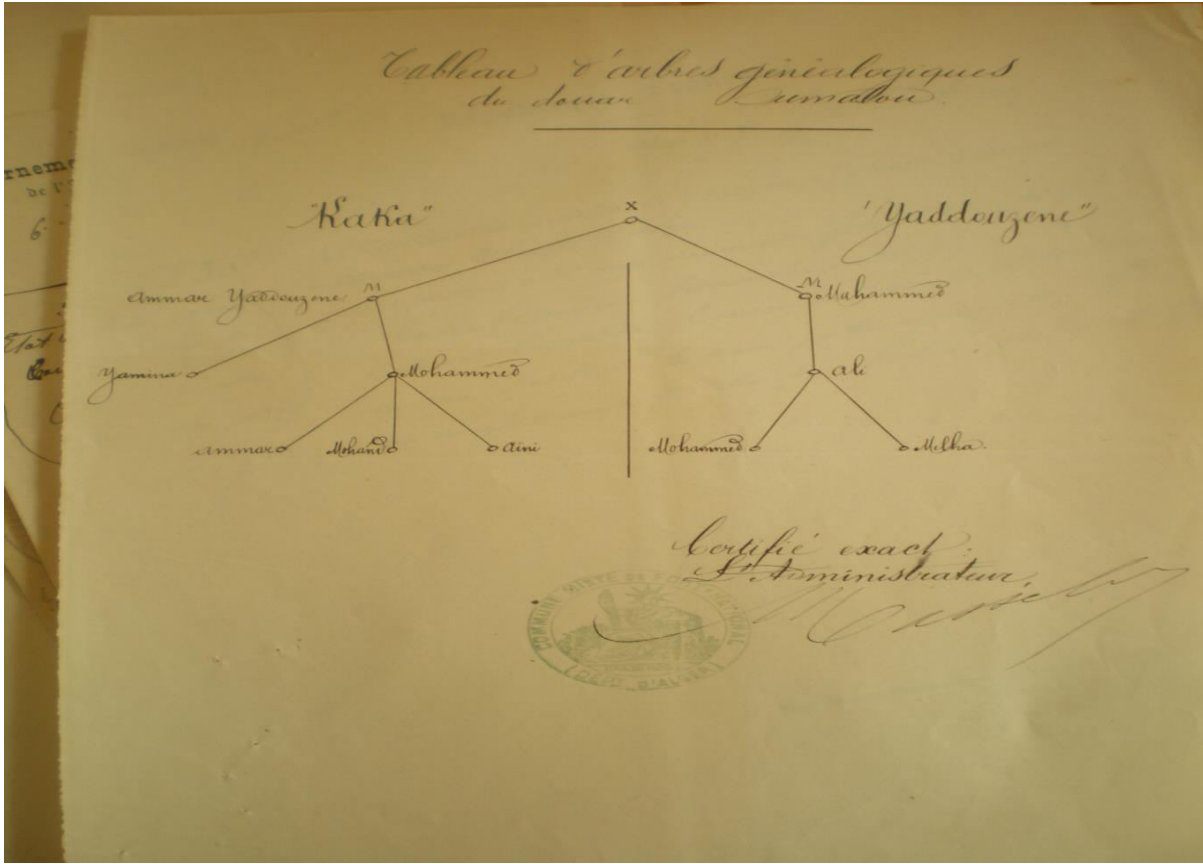 Tableau d'arbres généalogiques
du douar Oumalou.
"Kaka"
X
"Yaddouzene"
Ammar Yaddouzene
M
M
Mohammed
Yamina
Mohammed
Ali
Ammar
Mohand
Aïni
Mohammed
Melha.
Certifié exact:
L'Administrateur,
COMMUNE MIXTE DE FORT NATIONAL
(DÉPT D'ALGER)
rneme
de l'
6
Etat